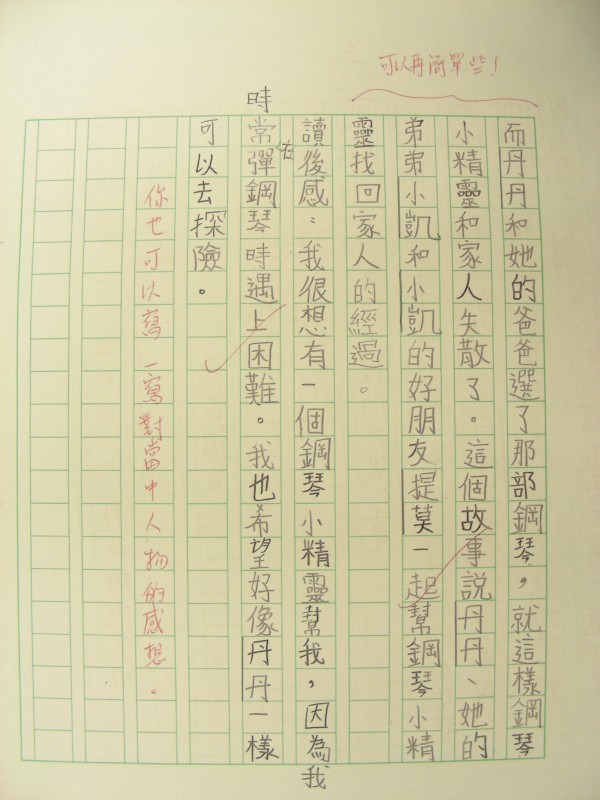 可以再簡單些！
而丹丹和她的爸爸選了那部鋼琴，就這樣鋼琴
小精靈和家人失散了。這個故事說丹丹、她的
弟弟小凱和小凱的好朋友提莫一起幫鋼琴小精
靈找回家人的經過。
讀後感：我很想有一個鋼琴小精靈幫我，因為我
時常在彈鋼琴時遇上困難。我也希望好像丹丹一樣
可以去探險。
你也可以寫一寫對當中人物的感想。